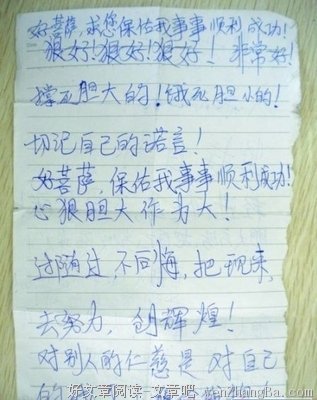 好菩萨,求您保佑我事事顺利成功!
狠好!狠好!狠好! 非常好!
撑死胆大的!饿死胆小的!
切记自己的诺言!
好菩萨,保佑我事事顺利成功!
心狠胆大作为大!
过随过,不同悔,把现来,
去努力,创辉煌!
对别人的仁慈是对自己
的
好文章阅读-文章吧-wenzhangba.com